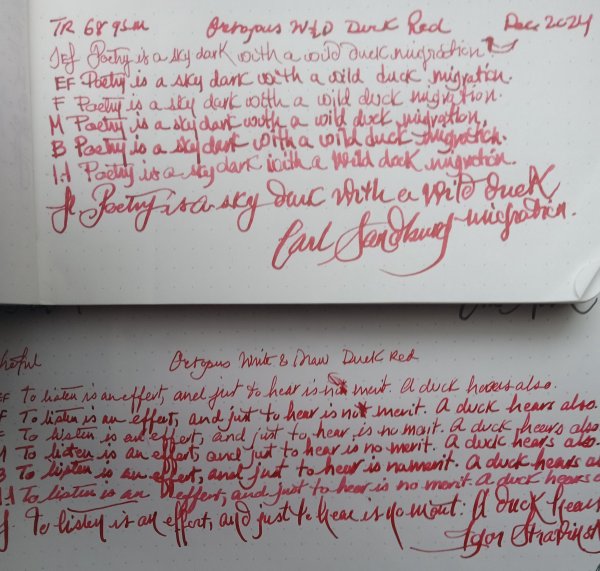 TR 68 gsm Octopus W&D Duck Red Dec 2024
Jef Poetry is a sky dark with a wild duck migration.
EF Poetry is a sky dark with a wild duck migration.
F Poetry is a sky dark with a wild duck migration.
M Poetry is a sky dark with a wild duck migration.
B Poetry is a sky dark with a wild duck migration.
1.1 Poetry is a sky dark with a wild duck migration.
Poetry is a sky dark with a wild duck
migration.
Carl Sandburg
Octopus Write & Draw Duck Red
EF To listen is an effort, and just to hear is no merit. A duck hears also.
F To listen is an effort, and just to hear is no merit. A duck hears also.
F To listen is an effort, and just to hear is no merit. A duck hears also
M To listen is an effort, and just to hear is no merit. A duck hears also.
B To listen is an effort, and just to hear is no merit. A duck hears al
1.1 To listen is an effort, and just to hear is no merit. A duck hears a
To listen is an effort, and just to hear is no merit. A duck hears
Igor Stravinsk